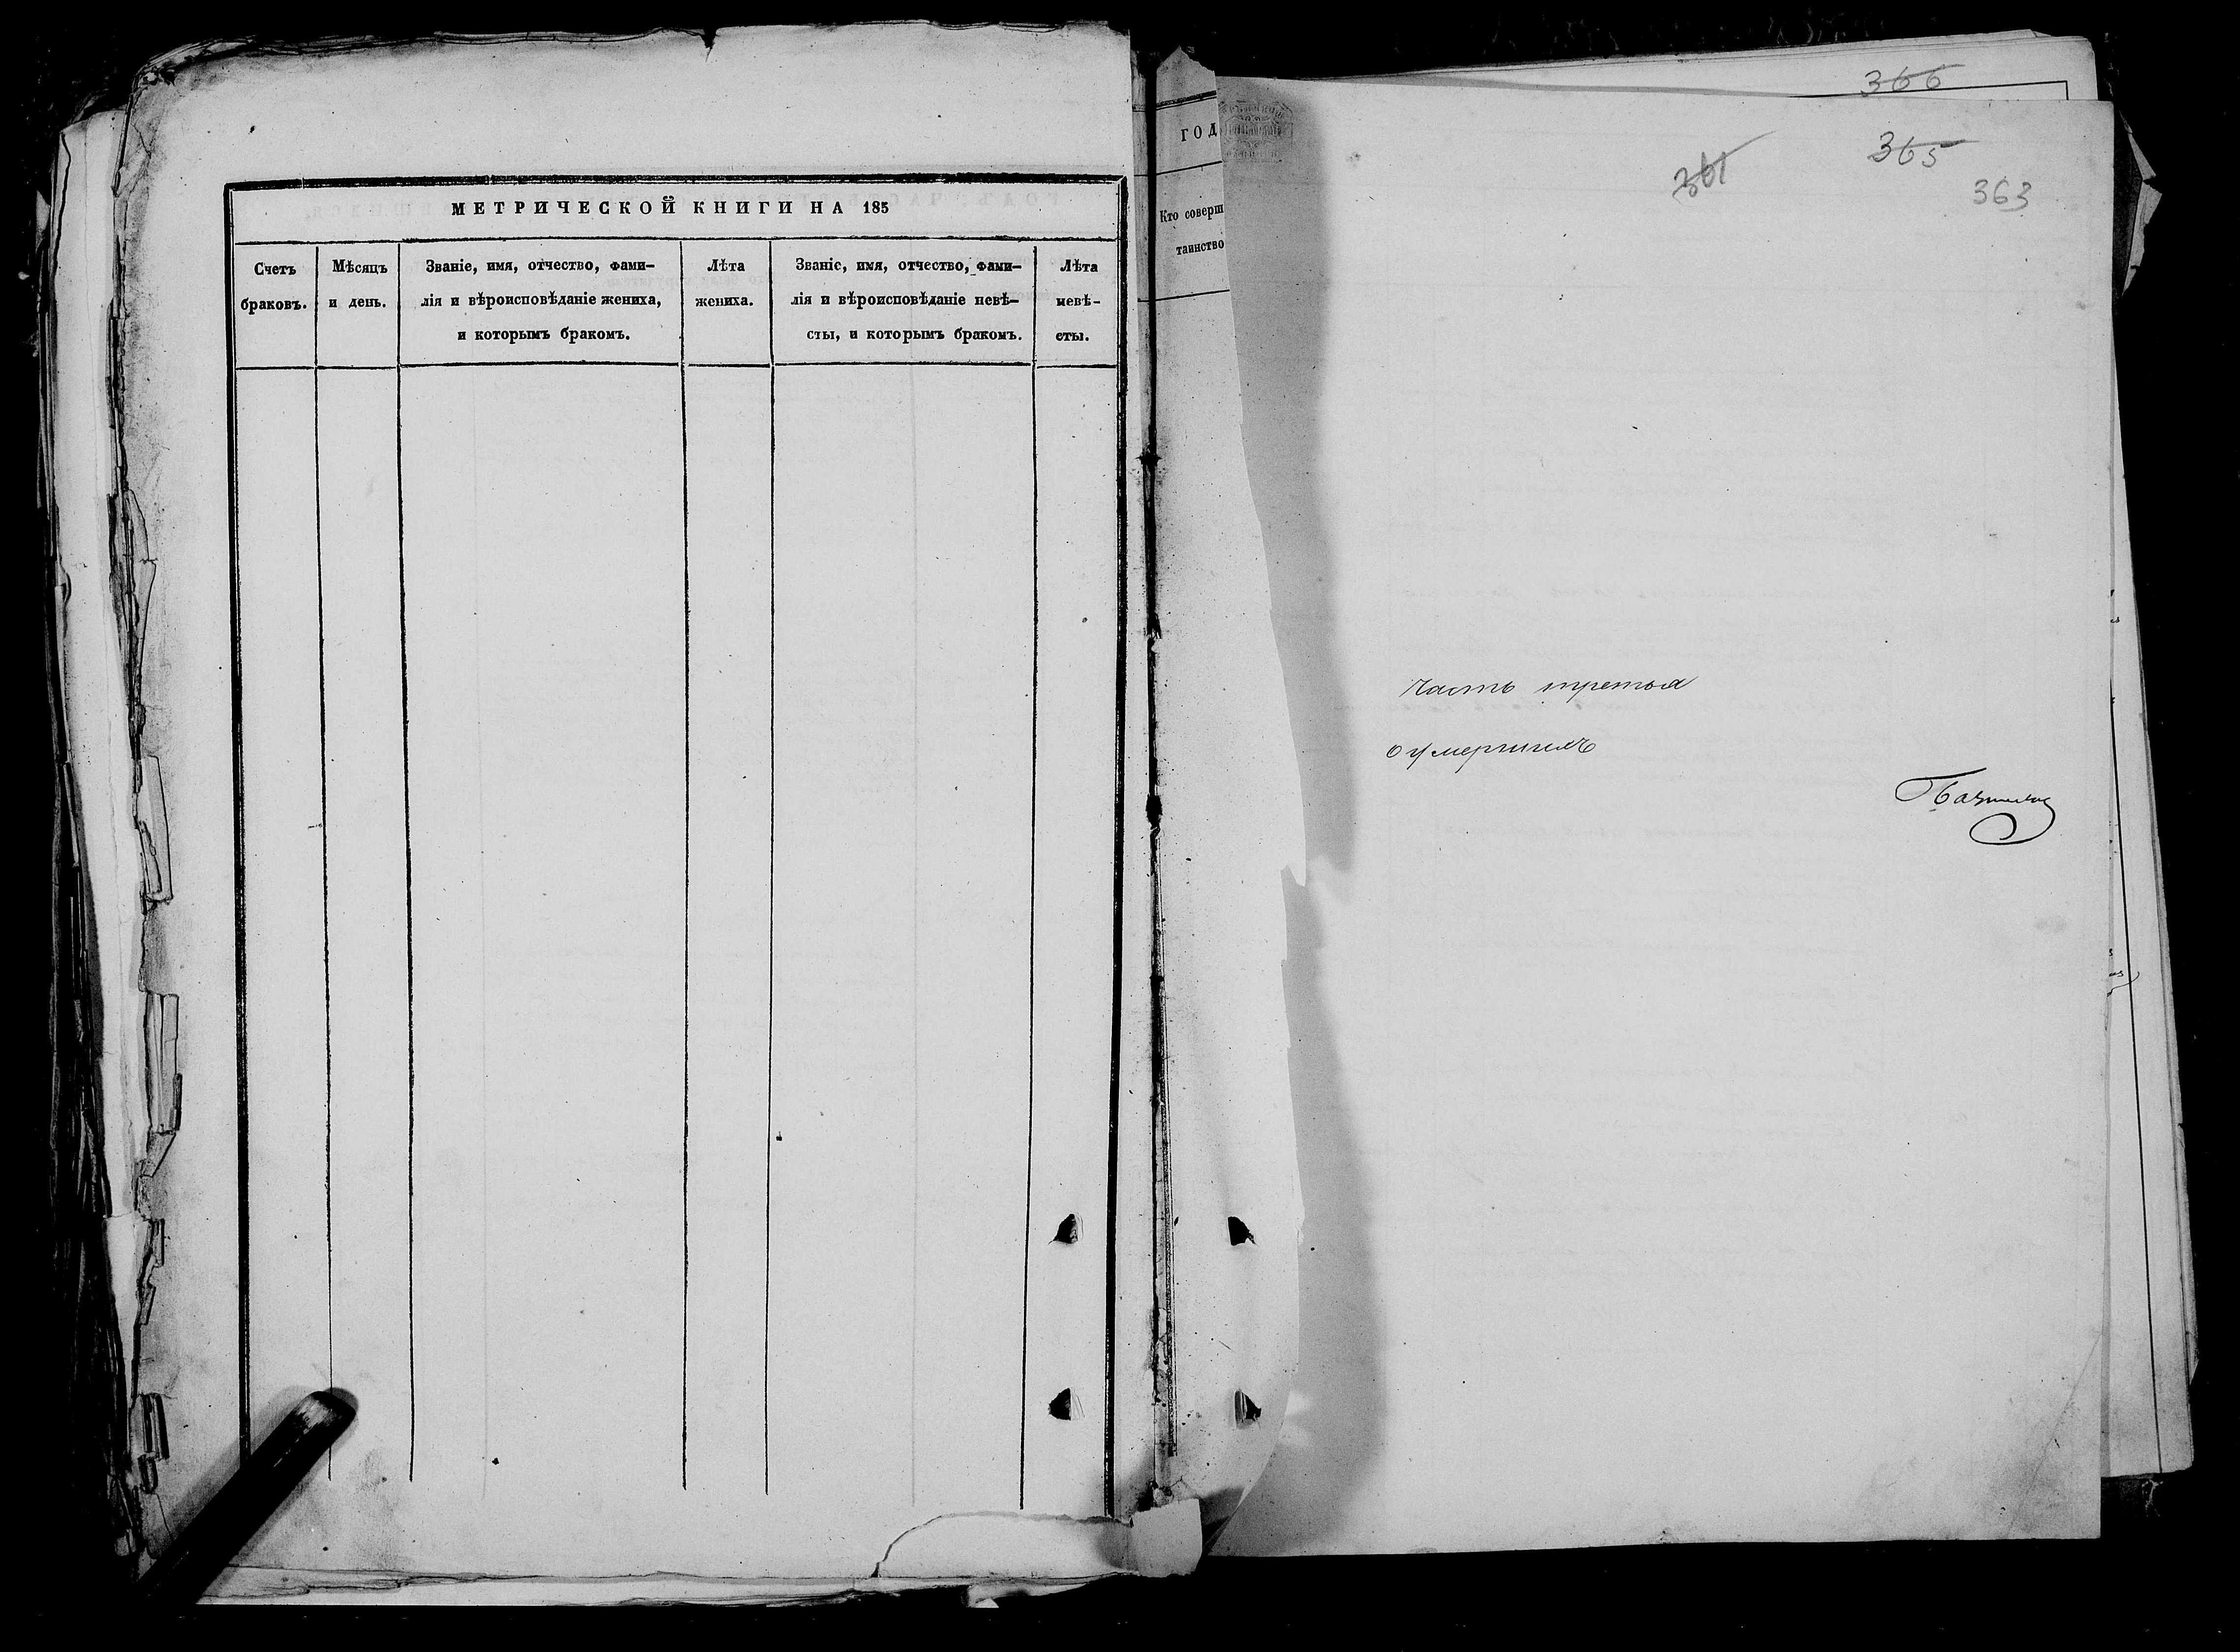 МЕТРИЧЕСКОЙ КНИГИ НА 185
Счетъ браковъ.
Мѣсяцъ и день.
Званіе, имя, отчество, фами-
лія и вѣроисповѣданіе жениха,
и которымъ бракомъ.
Лѣта
жениха.
Званіе, имя, отчество, фами-
лія и вѣроисповѣданіе невѣ-
сты, и которымъ бракомъ.
Лѣта
невѣ-
сты.
ГОД
Кто соверш
таинство
366
365
361
363
Часть третья
о умершихъ